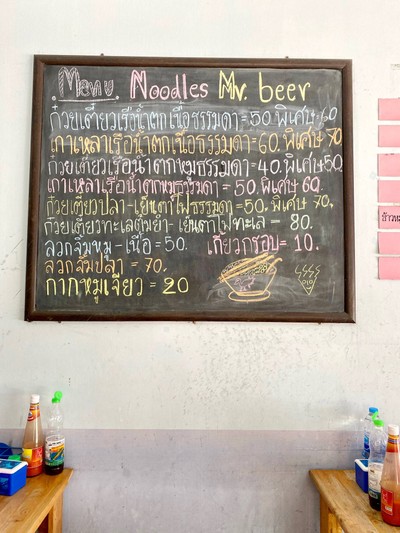 Menu. Noodles Mr. beer
ก๋วยเตี๋ยวเรือน้ำตกเนื้อธรรมดา=50.พิเศษ 60
เกาเหลาเรือน้ำตกเนื้อธรรมดา=60.พิเศษ 70
ก๋วยเตี๋ยวเรือน้ำตกหมูธรรมดา=40.พิเศษ50.
เกาเหลาเรือน้ำตกหมูธรรมดา=50.พิเศษ 60.
ก๋วยเตี๋ยวปลา-เย็นตาโฟธรรมดา=50.พิเศษ 70,
ก๋วยเตี๋ยวทะเลต้มยำ-เย็นตาโฟทะเล = 80.
ลวกจิ้มหมู-เนื้อ=50. เกี๊ยวกรอบ=10.
ลวกจิ้มปลา = 70.
กากหมูเจียว = 20